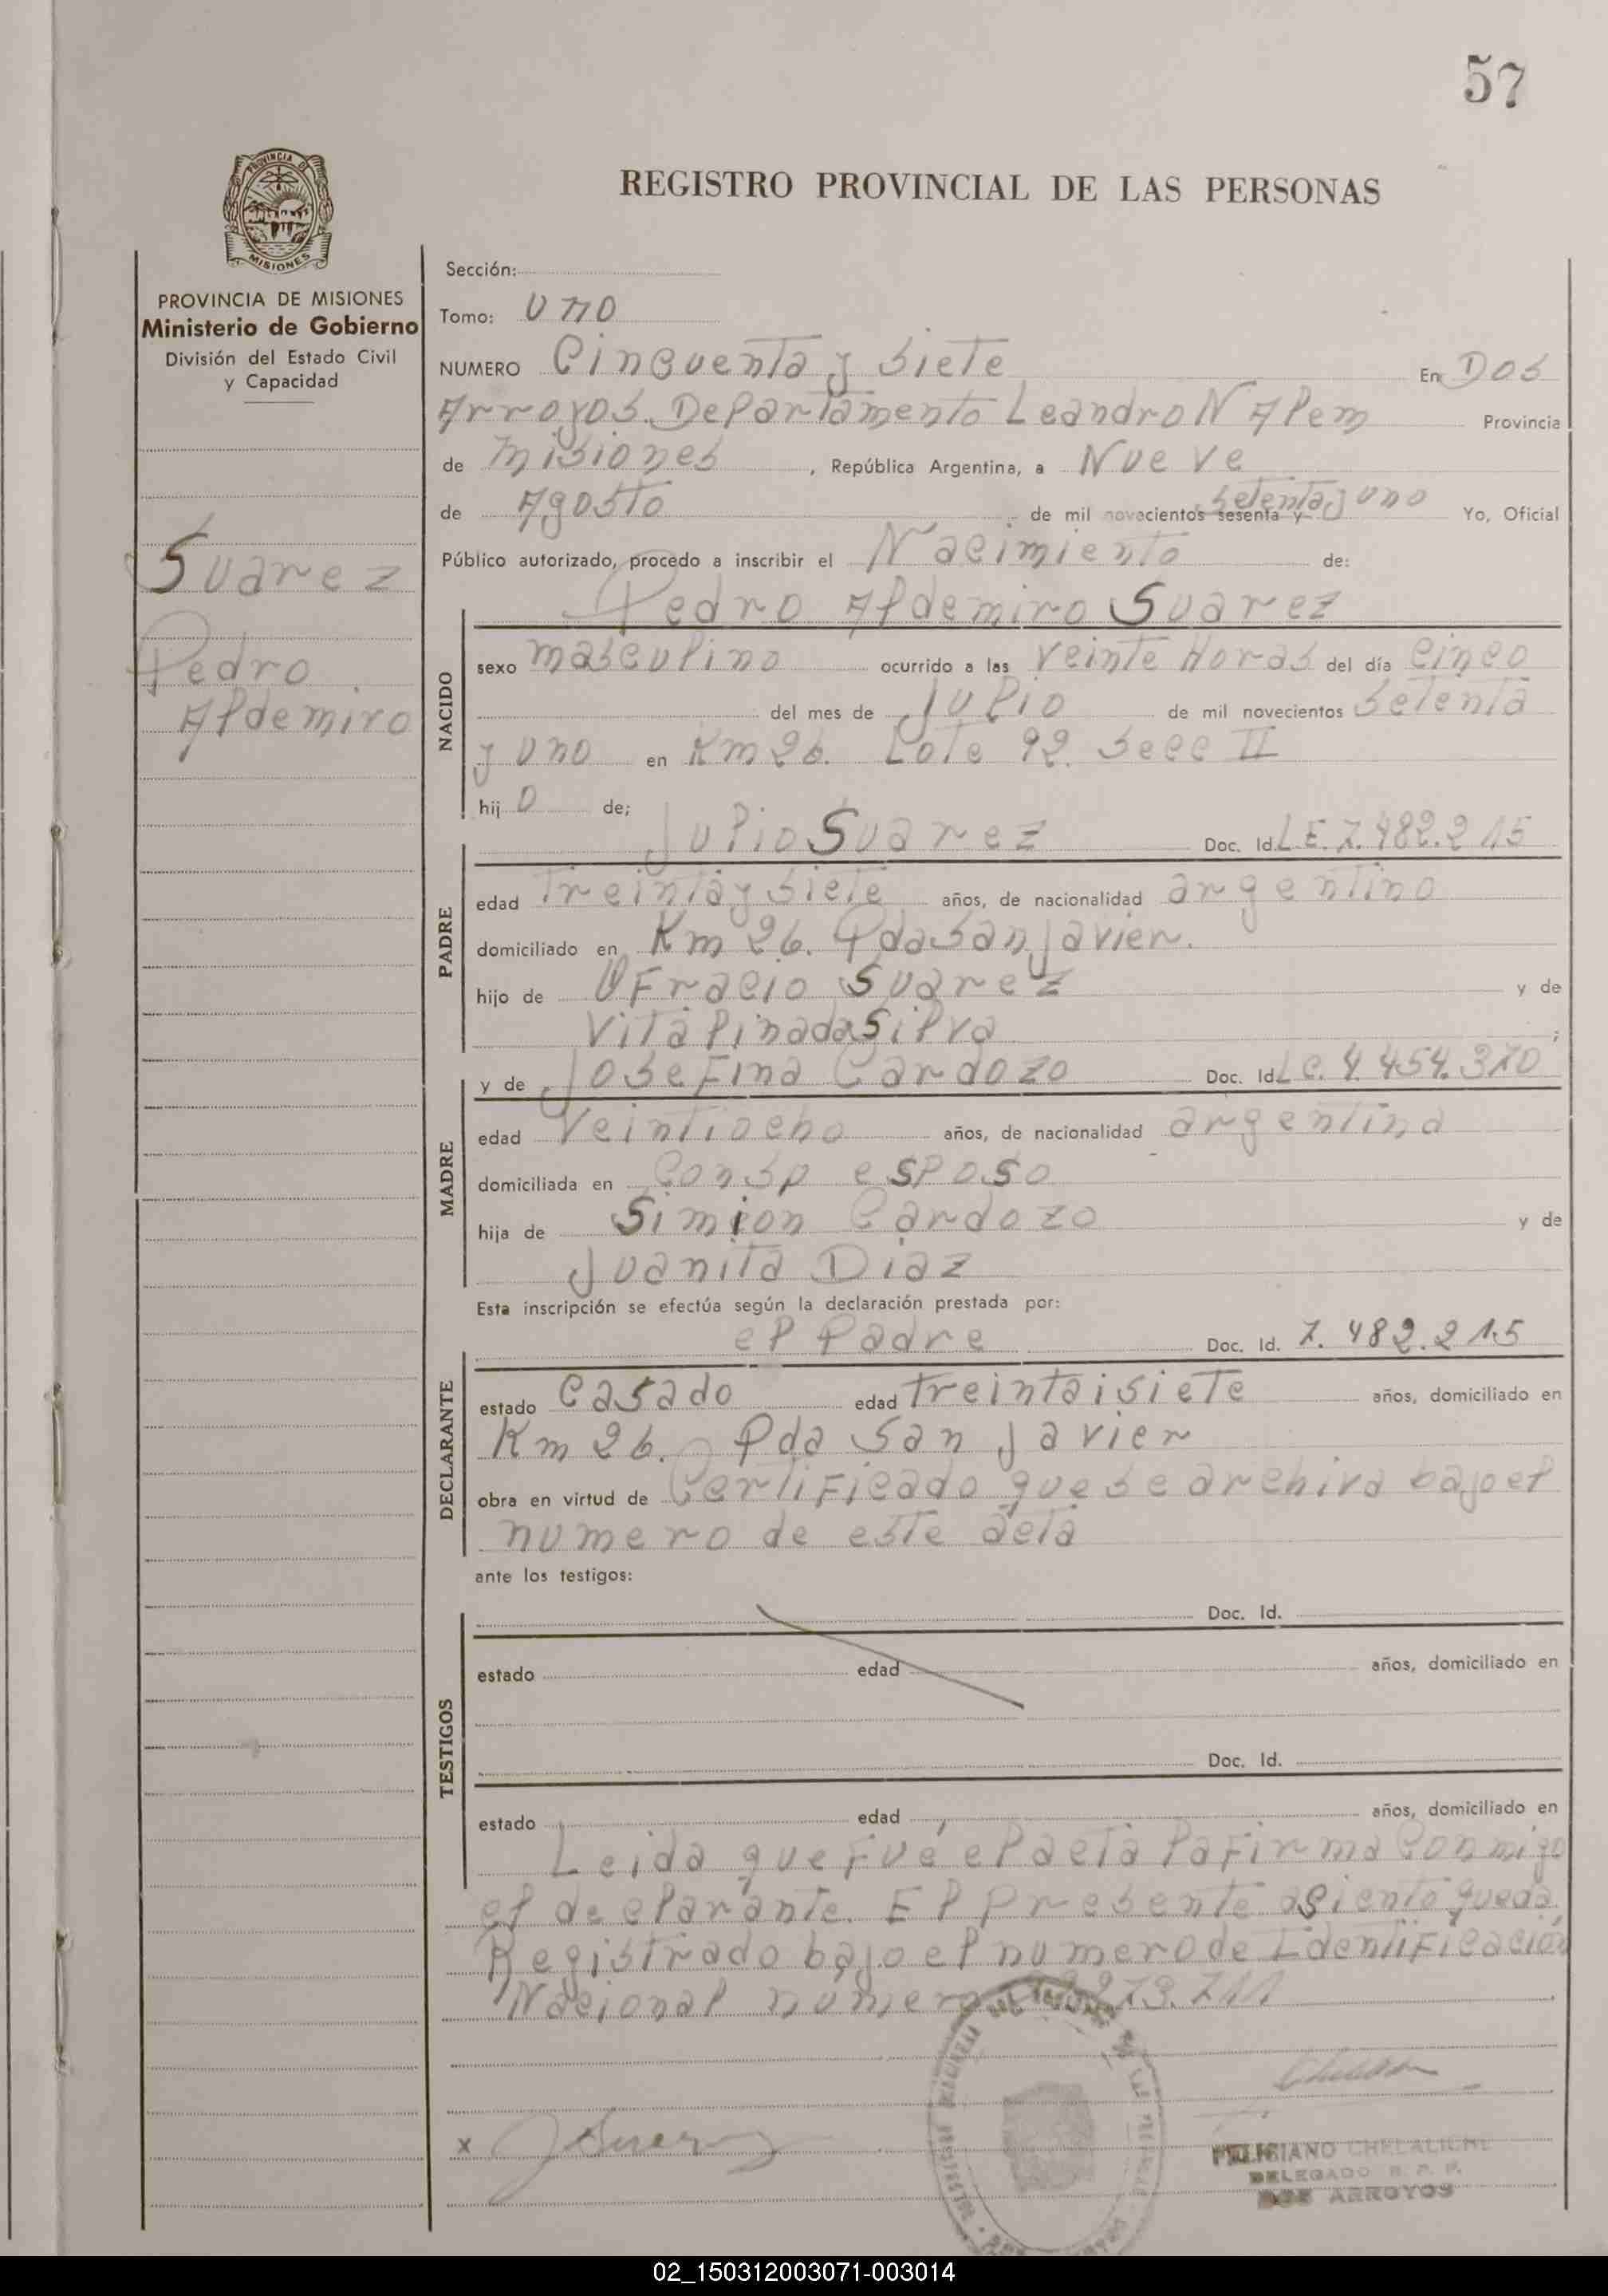 57
PROVINCIA DE
MISIONES
PROVINCIA DE MISIONES
Ministerio de Gobierno
División del Estado Civil
y Capacidad
Suarez
Pedro
Aldemiro
REGISTRO PROVINCIAL DE LAS PERSONAS
Sección:
Tomo: uno
NUMERO Cincuenta y siete En Dos
Arroyos. Departamento Leandro N Alem Provincia
de misiones, República Argentina, a Nueve
de Agosto de mil novecientos sesenta y setenta y uno Yo, Oficial
Público autorizado, procedo a inscribir el Nacimiento de:
Pedro Aldemiro Suarez
NACIDO
sexo masculino ocurrido a las veinte Horas del día cinco
del mes de Julio de mil novecientos setenta
y uno en Km 26. Lote 92. Secc II
hijo de;
PADRE
Julio Suarez Doc. Id. L E. 7.482.215
edad treinta y siete años, de nacionalidad argentino
domiciliado en Km 26. Pda San Javier.
hijo de Ufracio Suarez y de
Vitalina da Silva;
MADRE
y de Josefina Cardozo Doc. Id. L C. 4.454.370
edad veintiocho años, de nacionalidad argentina
domiciliada en Con sp esposo
hija de Simion Cardozo y de
Juanita Diaz
Esta inscripción se efectúa según la declaración prestada por:
DECLARANTE
el Padre Doc. Id. 7.482.215
estado Casado edad treintaisiete años, domiciliado en
Km 26. Pda San Javier
obra en virtud de Certificado que se archiva bajo el
numero de este acta
ante los testigos:
TESTIGOS
Doc. Id.
estado edad años, domiciliado en
Doc. Id.
estado edad años, domiciliado en
Leida que fué el acta la firma Conmigo
el declarante. El presente asiento queda
Registrado bajo el numero de Identificación
Nacional numero 273.711
x J Suarez
FELISIANO
DELEGADO R. P. P.
DOS ARROYOS
02_150312003071-003014